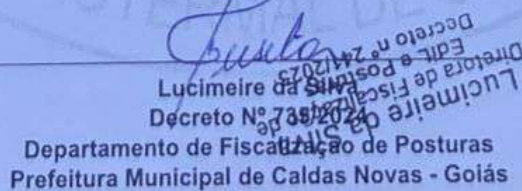 Lucimeire da Silva
Decreto Nº 735/2024
Departamento de Fiscalização de Posturas
Prefeitura Municipal de Caldas Novas - Goiás
Lucimeire da Silva
Diretora de Fiscalização de
Edif. e Posturas
Decreto nº 241/2025